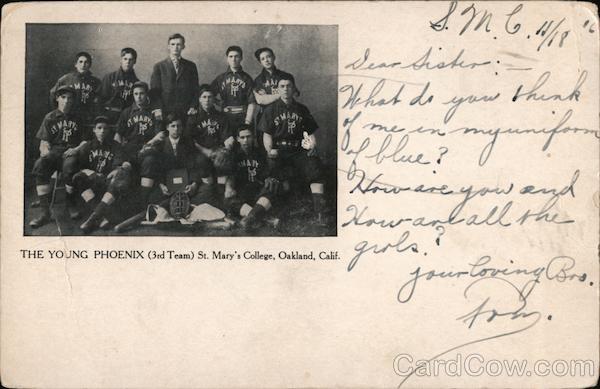 S.M.C. 11/18 '6
Dear Sister:—
What do you think
of me in my uniform
of blue?
How are you and
How are all the
girls?
your Loving Bro.
ST MARY'S
ST MARY'S
ST MARY'S
THE YOUNG PHOENIX (3rd Team) St. Mary's College, Oakland, Calif.
CardCow.com